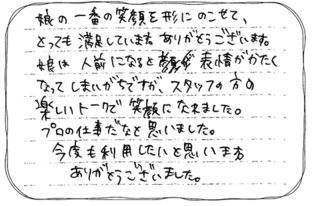 娘の一番の笑顔を形にのこせて、
とっても満足しています。ありがとうございます。
娘は人前になると表情がかたく
なってしまいがちですが、スタッフの方の
楽しいトークで笑顔になれました。
プロの仕事だなと思いました。
今度も利用したいと思います
ありがとうございました。